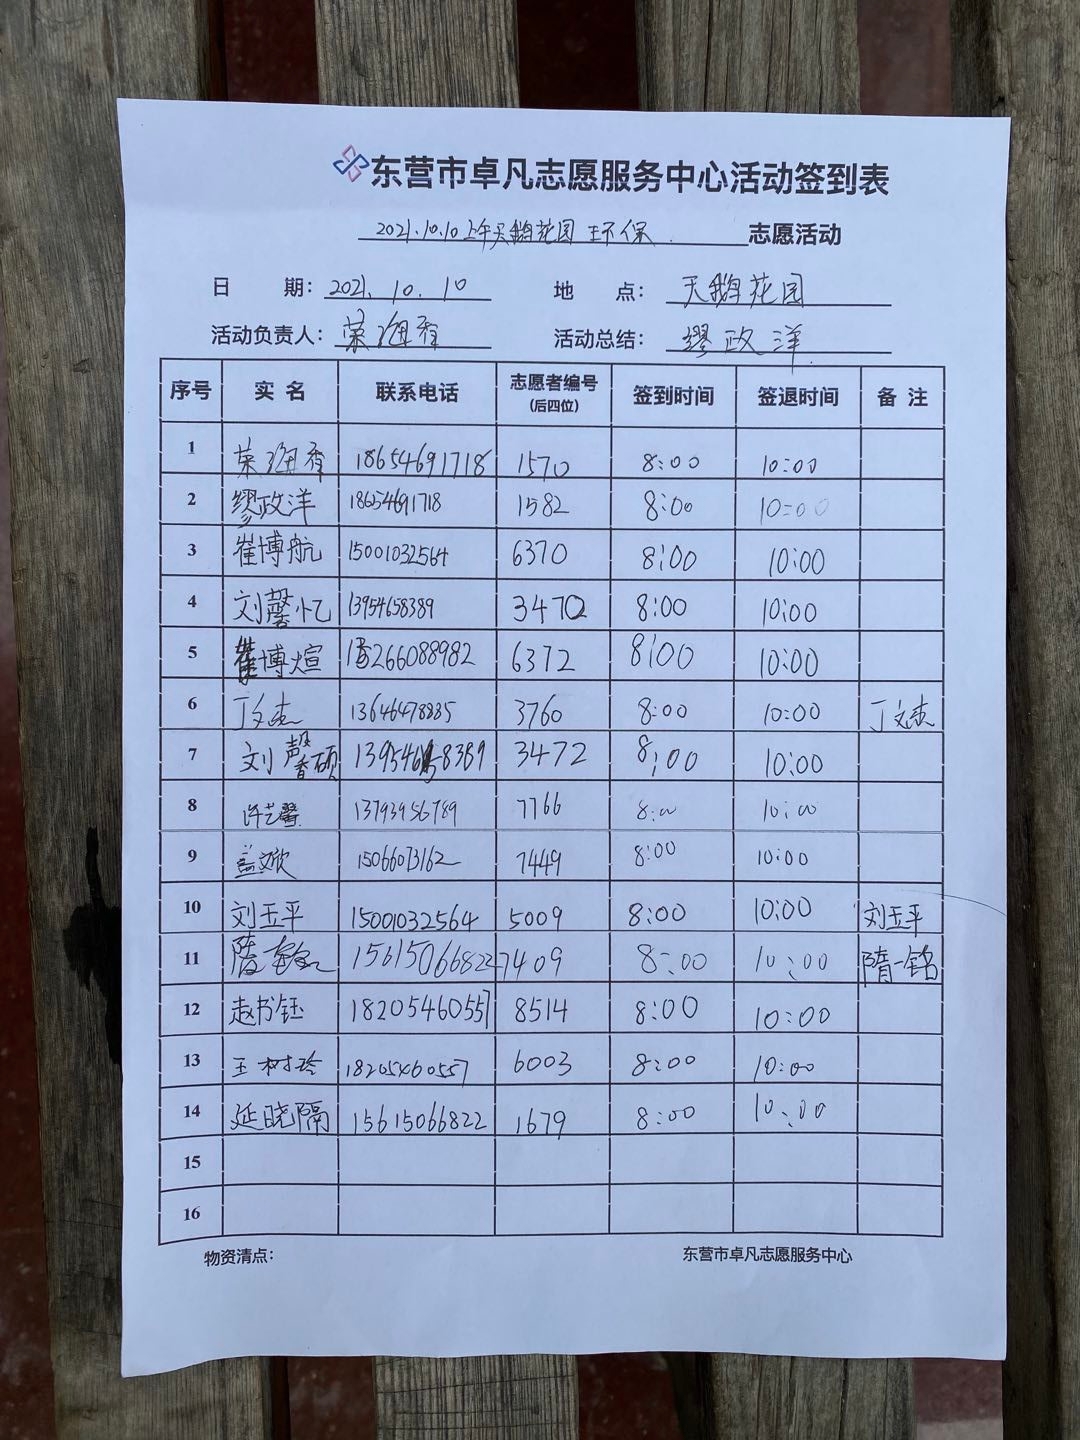 东营市卓凡志愿服务中心活动签到表
2021.10.10上午天鹅花园 环保 志愿活动
日 期: 2021.10.10 地 点: 天鹅花园
活动负责人: 荣海 活动总结: 缪政洋
序号 实名 联系电话 志愿者编号(后四位) 签到时间 签退时间 备注
1 荣海 18654691718 1570 8:00 10:00
2 缪政洋 18654691718 1582 8:00 10:00
3 崔博航 15001032564 6370 8:00 10:00
4 刘馨忆 13954658389 3470 8:00 10:00
5 崔博煊 15266088982 6372 8:00 10:00
6 丁文杰 3760 8:00 10:00 丁文杰
7 刘馨硕 3472 8:00 10:00
8 许艺馨 13793956789 7766 8:00 10:00
9 盖文欣 15066073162 7449 8:00 10:00
10 刘玉平 15001032564 5009 8:00 10:00 刘玉平
11 隋一铭 15615066822 7409 8:00 10:00 隋一铭
12 赵书钰 18205460557 8514 8:00 10:00
13 王树玲 18205460557 6003 8:00 10:00
14 延晓隔 15615066822 1679 8:00 10:00
15
16
物资清点: 东营市卓凡志愿服务中心